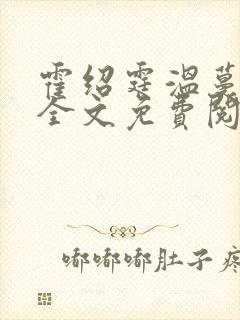 霍绍霆温蔓
全文免費閱
嘟嘟嘟肚子疼